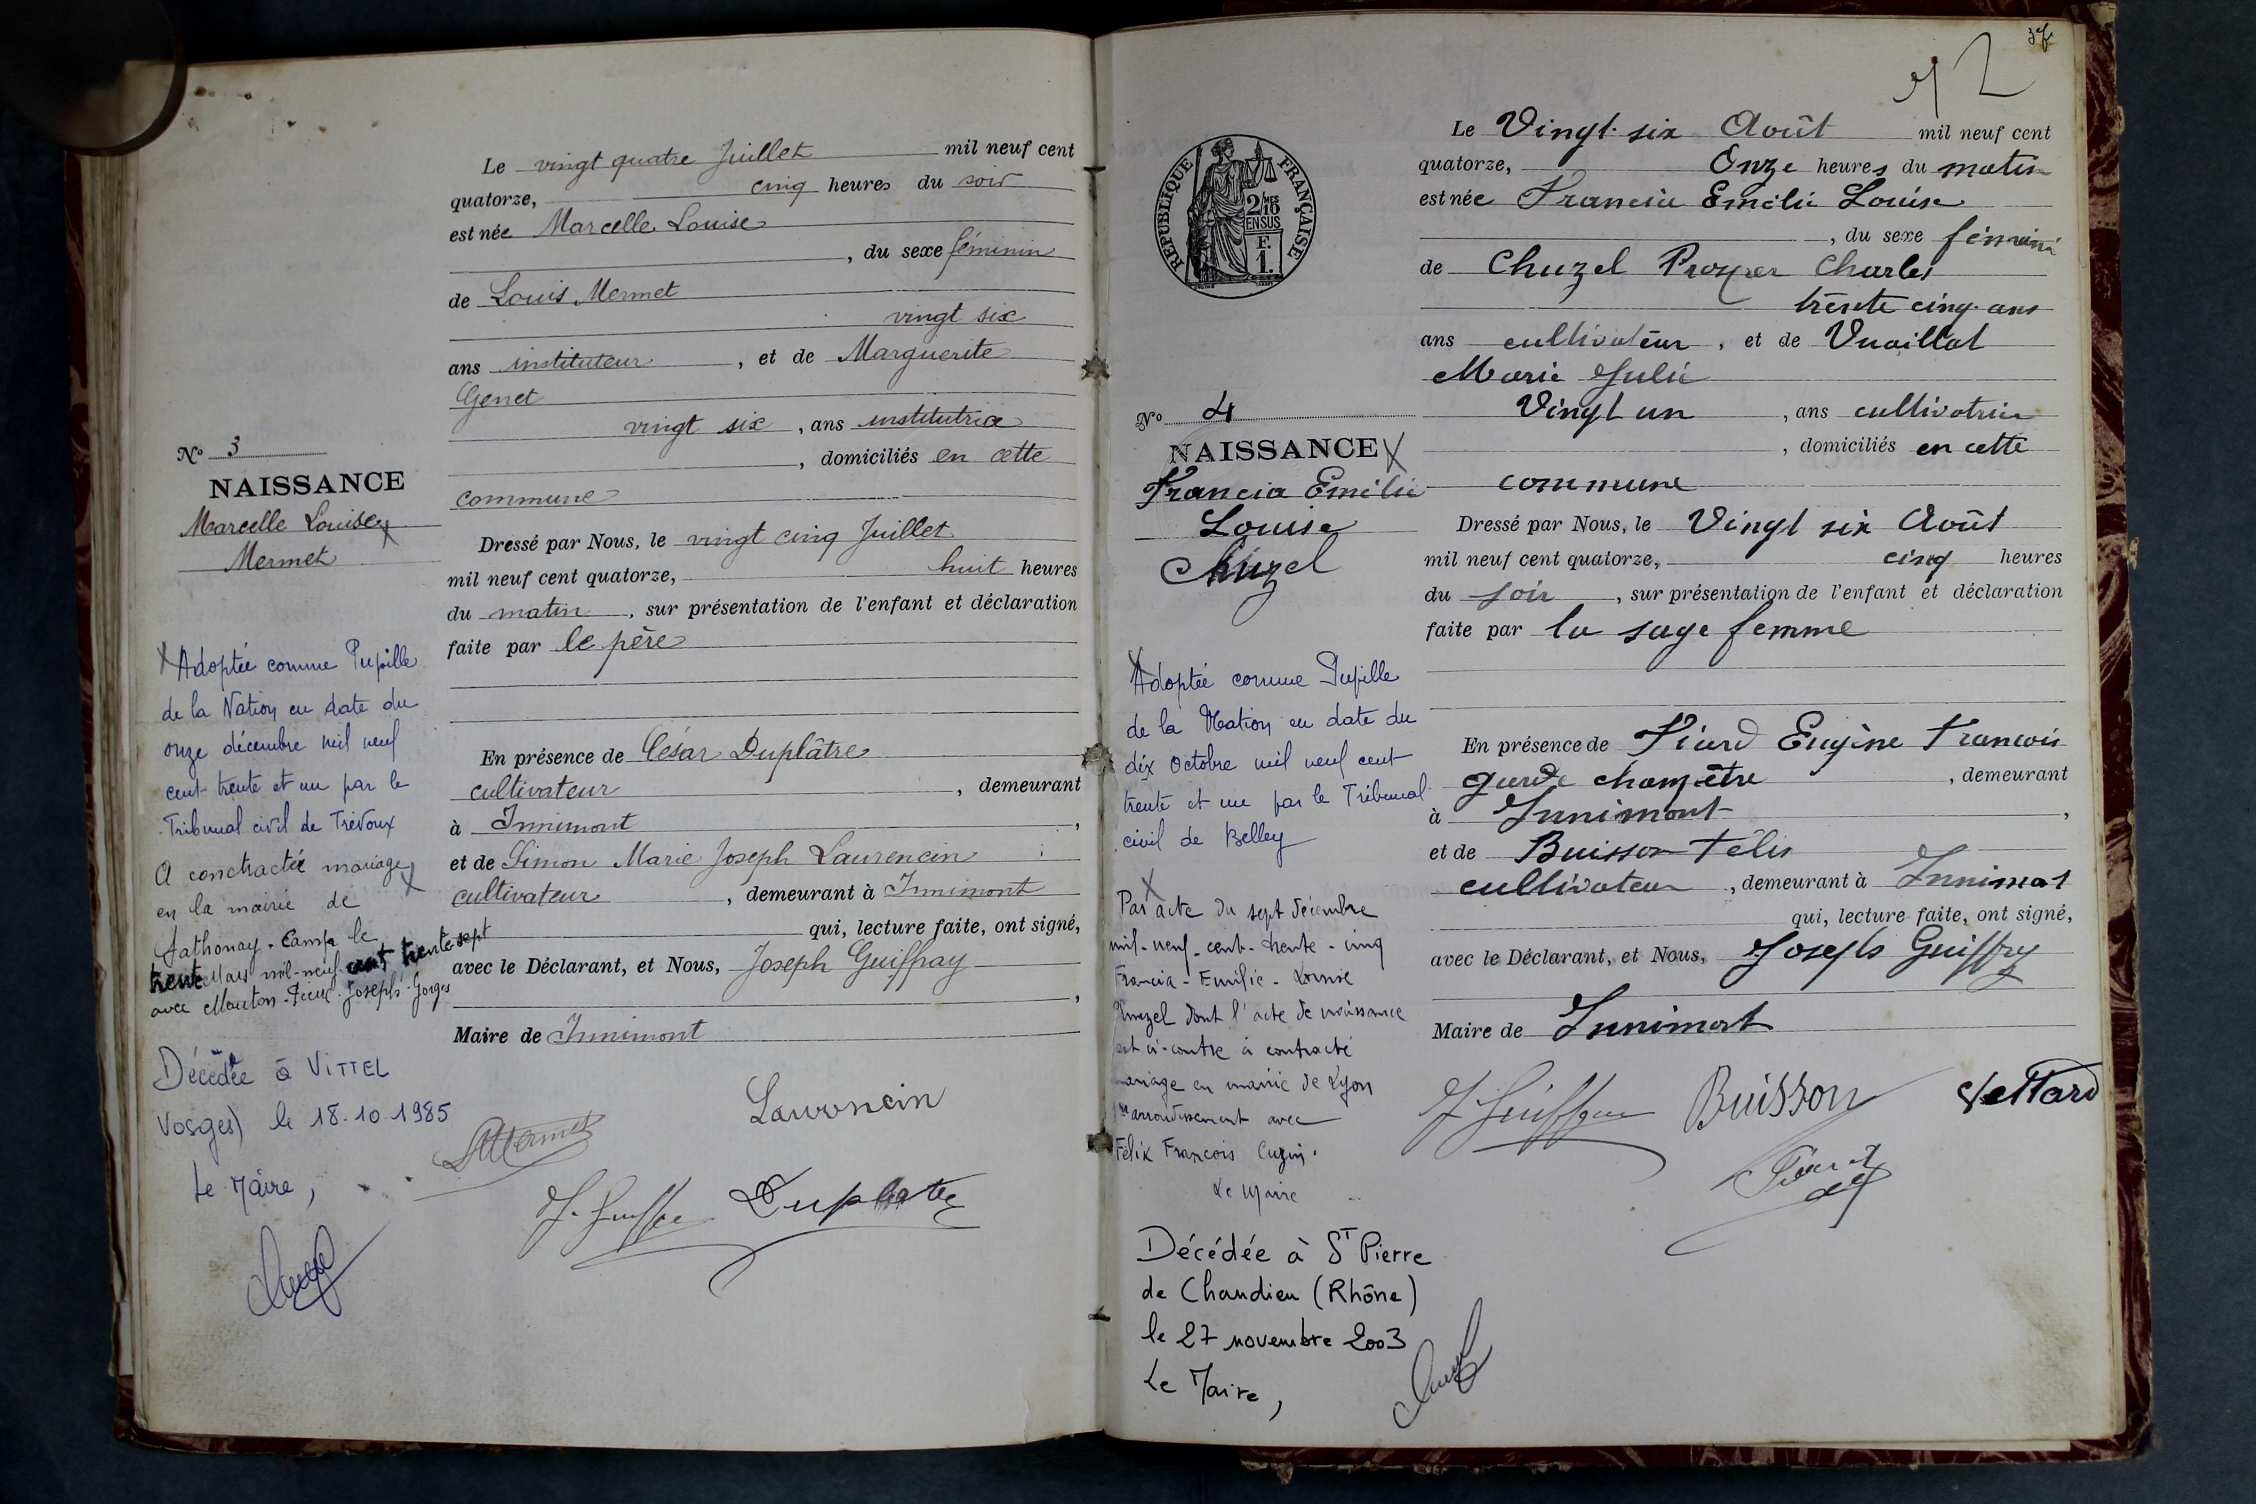 Le vingt quatre Juillet mil neuf cent
quatorze, cinq heures du soir
est née Marcelle Louise
, du sexe féminin
de Louis Mermet
vingt six
ans instituteur , et de Marguerite
Genet
vingt six , ans institutrice
, domiciliés en cette
commune
Dressé par Nous, le vingt cinq Juillet
mil neuf cent quatorze, huit heures
du matin , sur présentation de l'enfant et déclaration
faite par le père
En présence de César Duplâtre
cultivateur , demeurant
à Innimont ,
et de Simon Marie Joseph Laurencin
cultivateur , demeurant à Innimont
qui, lecture faite, ont signé,
avec le Déclarant, et Nous, Joseph Guiffray
,
Maire de Innimont
Laurencin
LMermet
J. Guiffray
Duplatre
No 3
NAISSANCE
Marcelle Louise
Mermet
Adoptée comme Pupille
de la Nation en date du
onze décembre mil neuf
cent trente et un par le
Tribunal civil de Trévoux
A conctractée mariage
en la mairie de
Sathonay-Camp le
trente Mars mil-neuf cent trente sept
avec Mouton-Pieux Joseph Georges
Décédée à VITTEL
Vosges) le 18.10.1985
Le Maire,
37
Le Vingt six Août mil neuf cent
quatorze, Onze heures du matin
est née Francia Emélie Louise
, du sexe féminin
de Chuzel Prosper Charles
trente cinq ans
ans cultivateur , et de Vuaillat
Marie Julie
Vingt un , ans cultivatrice
, domiciliés en cette
commune
Dressé par Nous, le Vingt six Août
mil neuf cent quatorze, cinq heures
du soir , sur présentation de l'enfant et déclaration
faite par la sage femme
En présence de Picard Eugène Francois
garde champêtre , demeurant
à Innimont ,
et de Buisson Félix
cultivateur , demeurant à Innimont
qui, lecture faite, ont signé,
avec le Déclarant, et Nous, Joseph Guiffry
Maire de Innimont
J. Guiffray
Buisson
Vettard
RÉPUBLIQUE FRANÇAISE
2/10 MES
EN SUS
F.
1.
No 4
NAISSANCE
Francia Emélie
Louise
Chuzel
Adoptée comme Pupille
de la Nation en date du
dix Octobre mil neuf cent
trente et un par le Tribunal
civil de Belley
Par acte du sept décembre
mil-neuf-cent-trente-cinq
Francia-Emilie-Louise
Chuzel dont l'acte de naissance
est ci-contre à contracté
mariage en mairie de Lyon
arrondissement avec
Félix François Cuzin.
Le Maire
Décédée à ST Pierre
de Chandieu (Rhône)
le 27 novembre 2003
Le Maire,